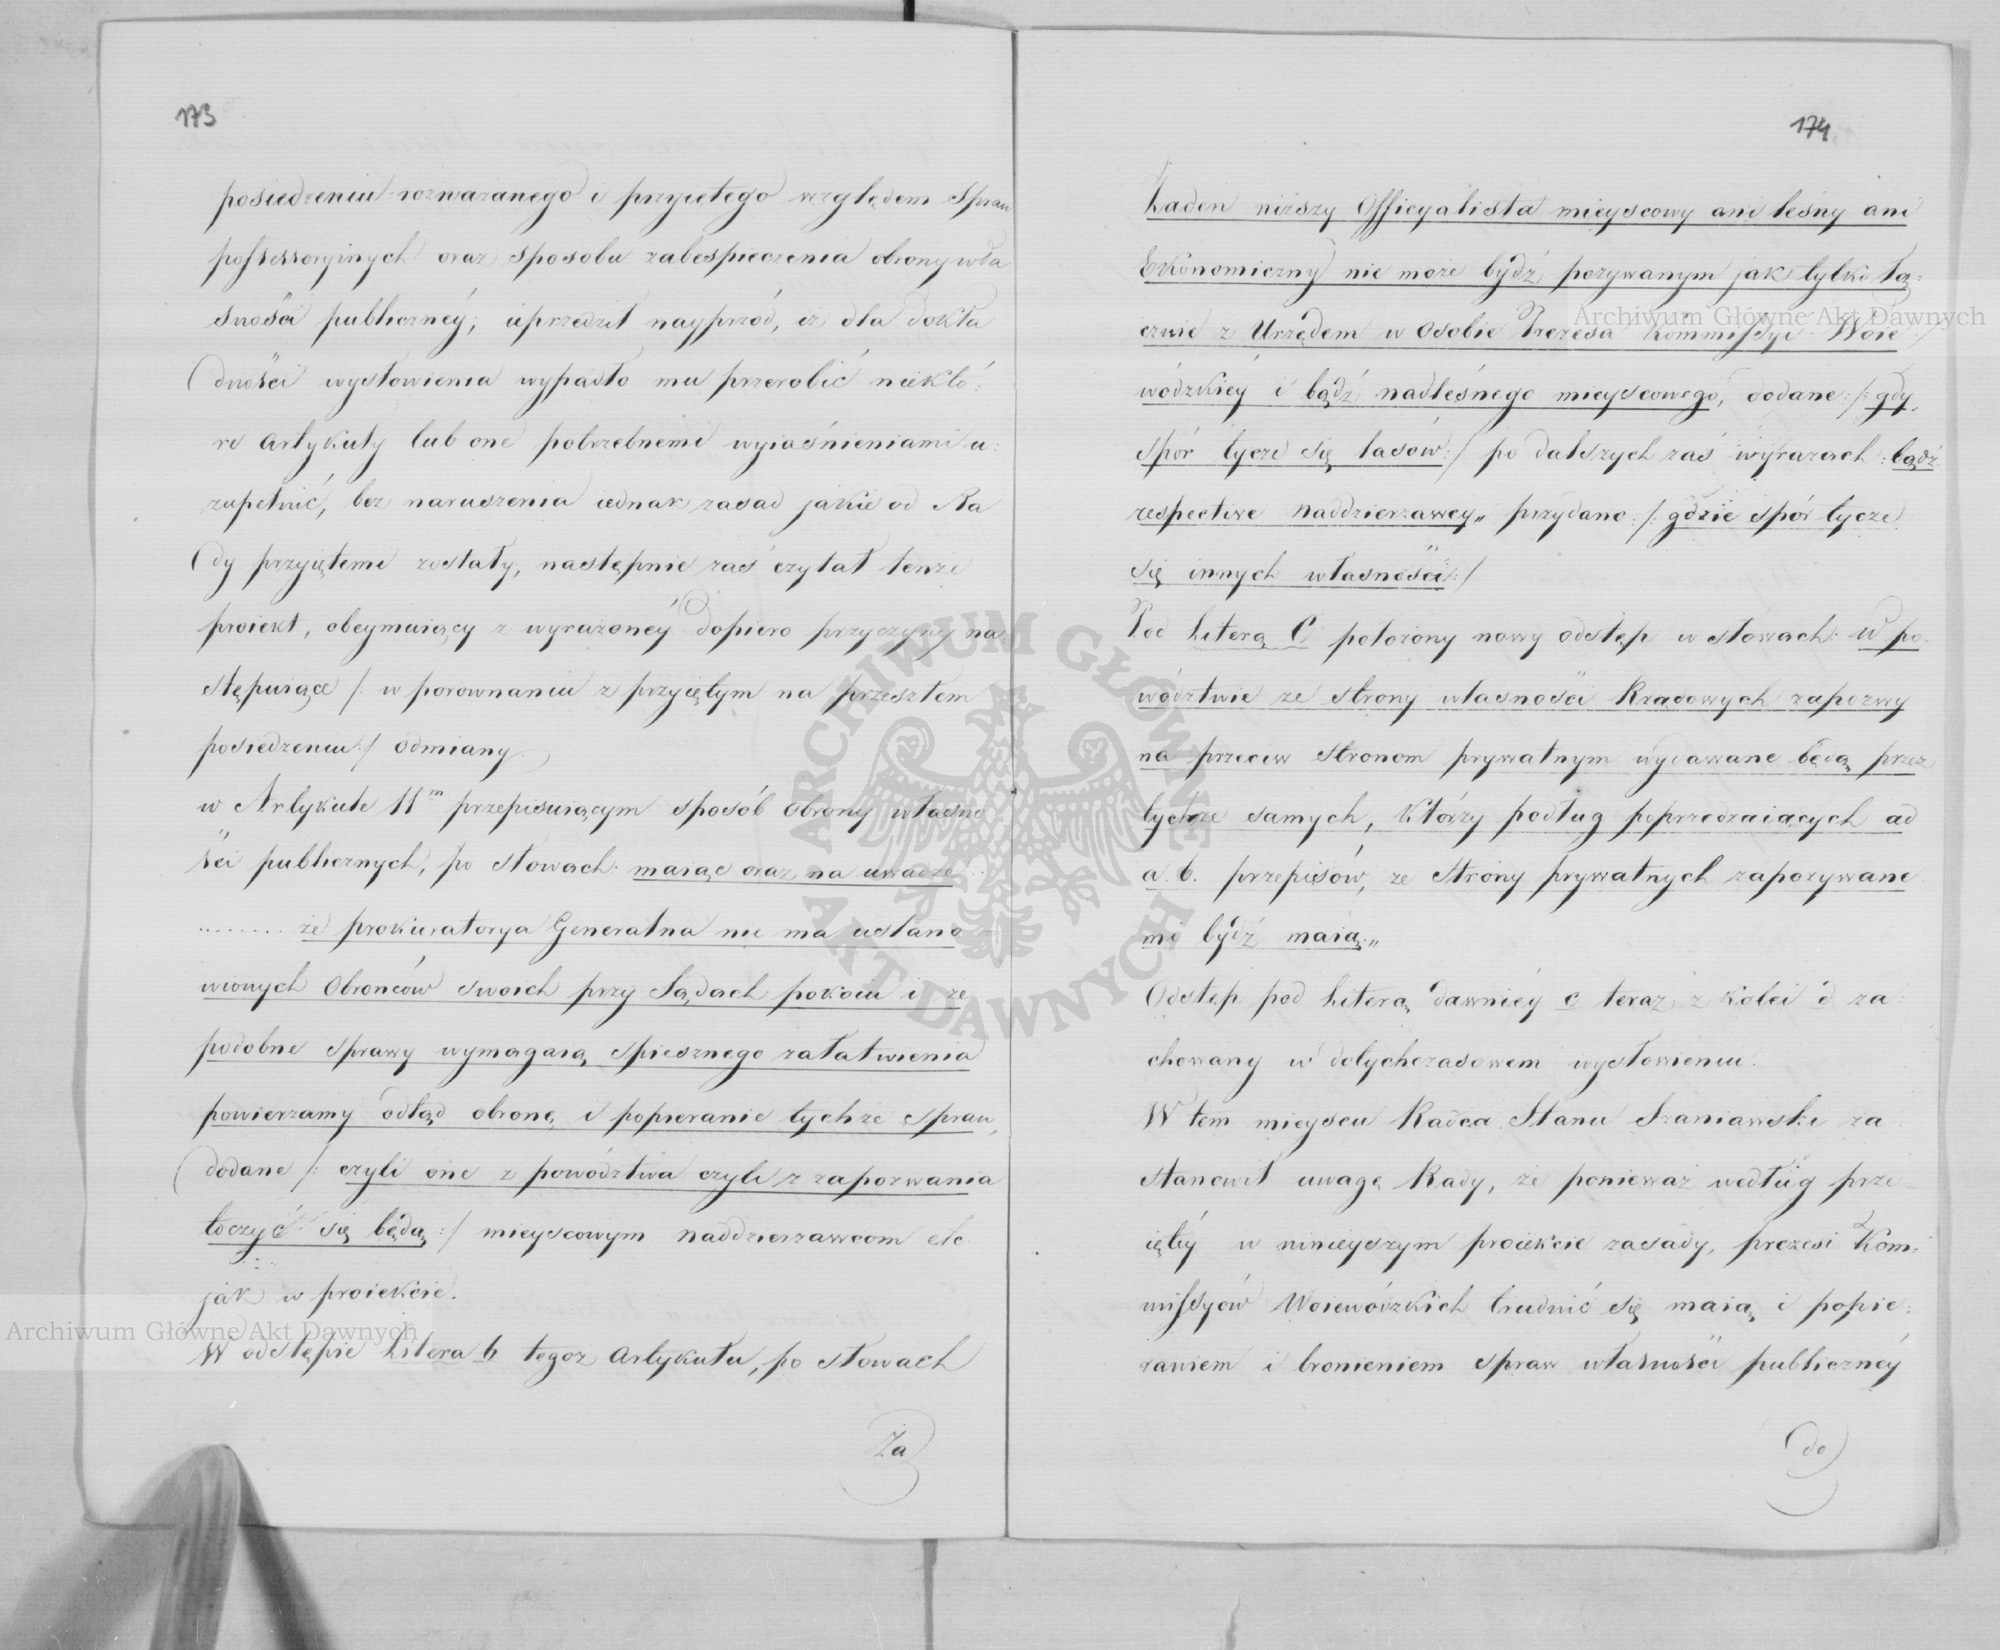 173
posiedzeniu rozważanego i przyiętego względem spraw
possessoryinych oraz sposobu zabespieczenia obrony wła
sności publicznéy; uprzedził nayprzód, iż dla dokła
dności wysłowienia wypadło mu przerobić niektó:
re Artykuły lub one potrzebnemi wyiaśnieniami u:
zupełnić, bez naruszenia iednak zasad jakie od Ra
dy przyiętemi zostały, następnie zaś czytał tenże
proiekt, obeymuiący z wyrażonéy dopiero przyczyny na:
stępuiące /: w porownaniu z przyiętym na przeszłem
posiedzeniu :/ odmiany
w Artykule 11m przepisuiącym sposób obrony własno
ści publicznych, po słowach: maiąc oraz na uwadze
........ że prokuratorya Generalna nie ma ustano
wionych Obrońców swoich przy Sądach pokoiu i że
podobne sprawy wymagaią spiesznego załatwienia
powierzamy odtąd obronę i popieranie tychże spraw,
dodane /: czyli one z powództwa czyli z zapozwania
toczyć się będą :/ mieyscowym naddzierzawcom etc
jak w proiekcie.
W odstępie litera b tegoż Artykułu, po słowach
Ża
174
Żaden niższy Officyalista mieyscowy ani leśny ani
Ekonomiczny nie może bydź pozywanym jak tylko łą:
cznie z Urzędem w osobie Prezesa Kommissyi Woie
wódzkiéy i bądź nadleśnego mieyscowego, dodane: /: gdy
spór tycze się lasów :/ po dalszych zaś wyrazach: bądź
respective naddzierzawcy„ przydane: /: gdzie spór tycze
się innych własności :/
Pod literą C położony nowy odstęp w słowach: w po
wództwie ze strony własności Rządowych zapozwy
na przeciw stronom prywatnym wydawane będą przez
tychże samych, którzy podług poprzedzaiących ad
a. b. przepisów, ze strony prywatnych zapozywane
mi bydź maią.„
Odstęp pod literą dawniéy c teraz z kolei d za:
chowany w dotychczasowem wysłowieniu.
W tem mieyscu Radca Stanu Szaniawski za
stanowił uwagę Rady, że ponieważ według prze
iętéy w ninieyszym proiekcie zasady, prezesi Kom:
missyów Woiewódzkich trudnić się maią i popie:
raniem i bronieniem spraw własności publicznéy
do
Archiwum Główne Akt Dawnych
Archiwum Główne Akt Dawnych
ARCHIWUM GŁÓWNE AKT DAWNYCH